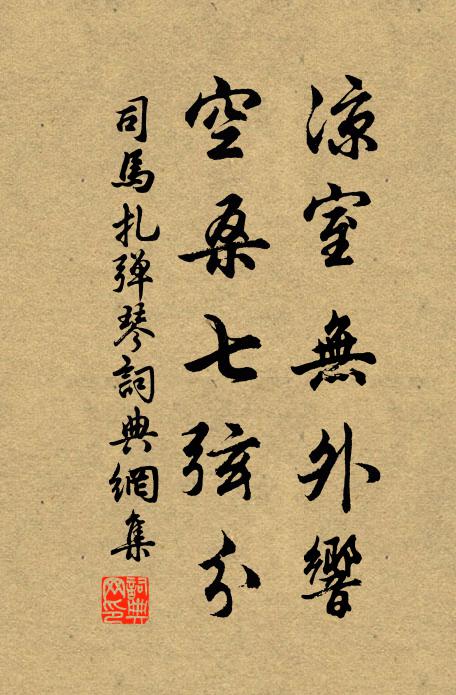 涼室無外響
空桑七弦分
司馬扎彈琴詞典網集
詞典網印